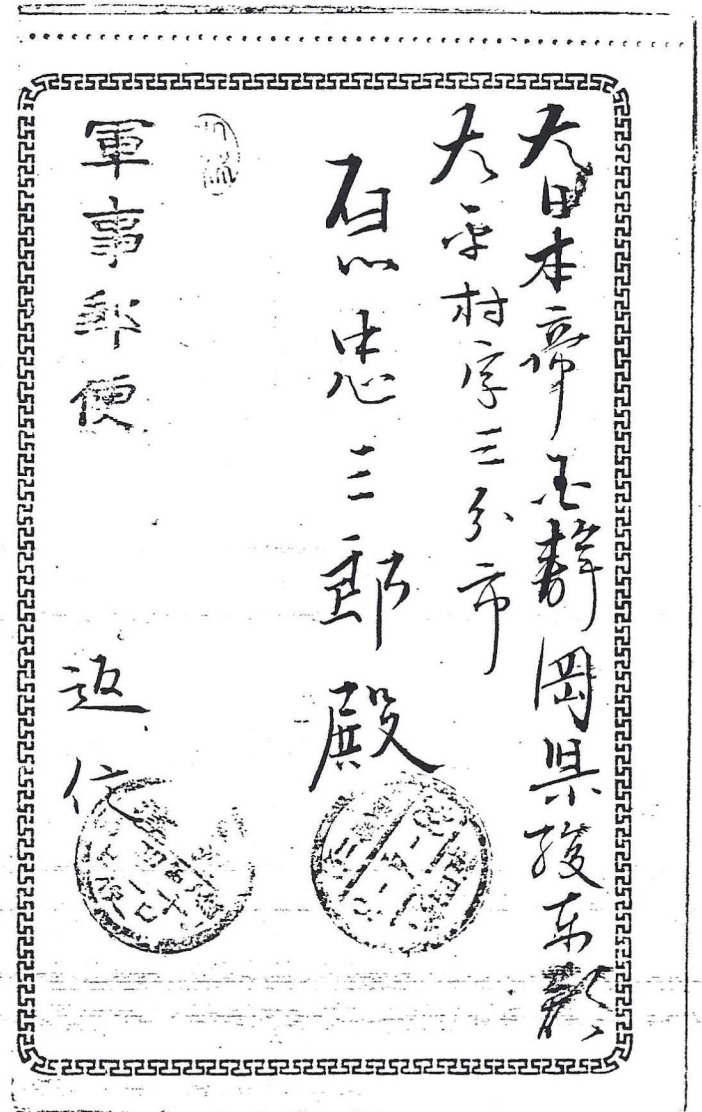 大日本帝国静岡県駿東郡
大平村字三分市
石川忠三郎殿
軍事郵便
返信